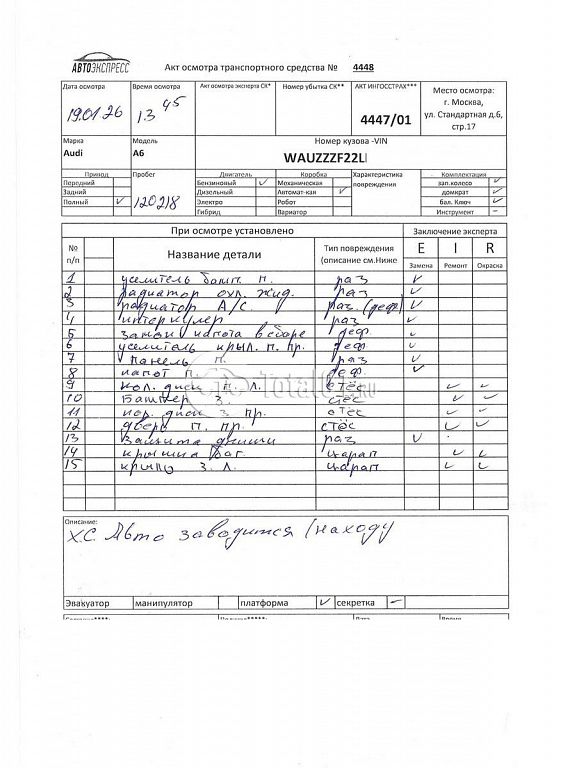 АВТОЭКСПРЕСС
Акт осмотра транспортного средства № 4448
Дата осмотра Время осмотра Акт осмотра эксперта СК* Номер убытка СК** АКТ ИНГОССТРАХ*** Место осмотра:
19.01.26 13 45 4447/01 г. Москва,
ул. Стандартная д.6,
стр.17
Марка Модель Номер кузова -VIN
Audi A6 WAUZZZF22L
Привод Пробег Двигатель Коробка Характеристика повреждения Комплектация
Передний 120218 Бензиновый ✓ Механическая зап.колесо ✓
Задний Дизельный Автомат-кая ✓ домкрат ✓
Полный ✓ Электро Робот бал. Ключ ✓
Гибрид Вариатор Инструмент –
При осмотре установлено Заключение эксперта
№ п/п Название детали Тип повреждения (описание см.Ниже E I R
Замена Ремонт Окраска
1 усилитель бамп. п. раз ✓
2 радиатор охл. жид. раз ✓
3 радиатор А/С раз. (деф) ✓
4 интеркулер раз ✓
5 замок капота в сборе деф. ✓
6 усилитель крыл. п. пр. деф. ✓
7 панель п. раз ✓
8 капот п. деф. ✓
9 кол. диск п. л. стёс ✓ ✓
10 Бампер з. стёс ✓ ✓
11 кол. диск з пр. стёс ✓ –
12 дверь п. пр. стёс ✓ ✓
13 защита днищи раз ✓
14 крышка баг. царап ✓ ✓
15 крыло з. л. царап ✓ ✓
Total01.ru
Описание:
Х.С. Авто заводится /находу
Эвакуатор манипулятор платформа ✓ секретка –